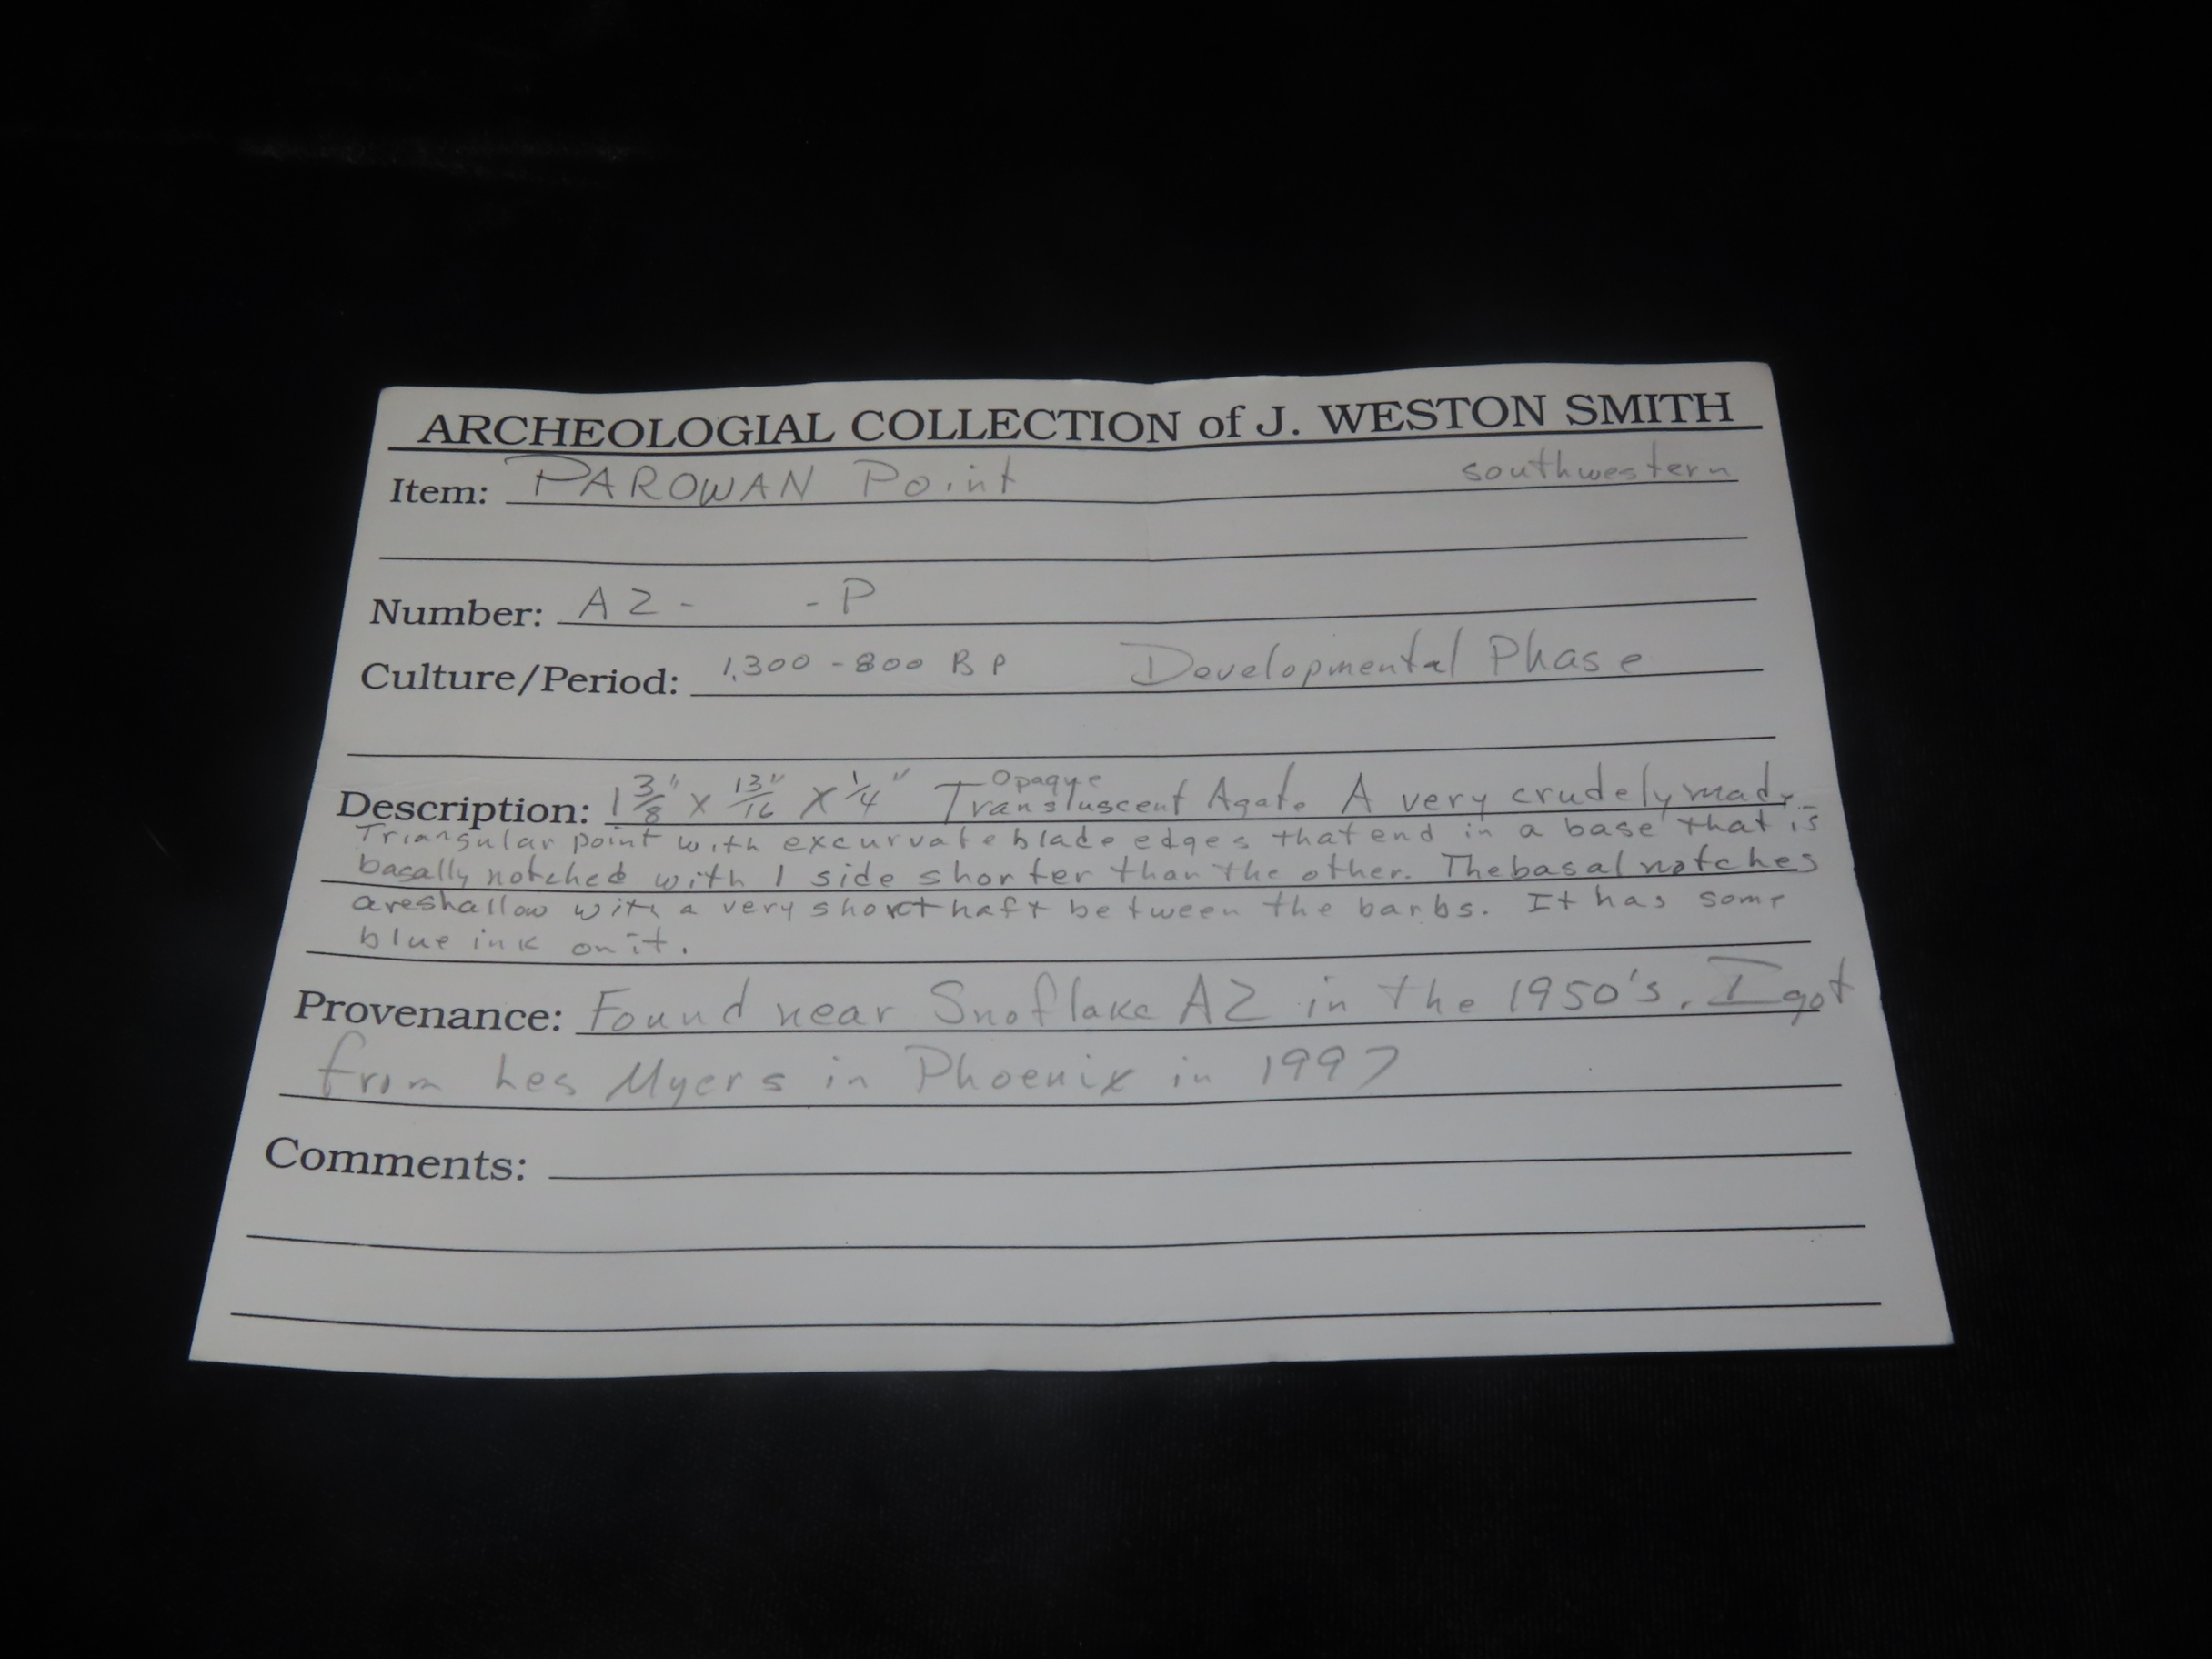 ARCHEOLOGIAL COLLECTION of J. WESTON SMITH
Item: PAROWAN Point southwestern
Number: AZ- -P
Culture/Period: 1,300-800 BP Developmental Phase
Opaque
Description: 1 3/8" X 13/16" X 1/4" Transluscent Agate A very crudely made
Triangular point with excurvate blade edges that end in a base that is
basally notched with 1 side shorter than the other. The basal notches
are shallow with a very short haft between the barbs. It has some
blue ink on it.
Provenance: Found near Snoflake AZ in the 1950's. I got
from Les Myers in Phoenix in 1997
Comments: